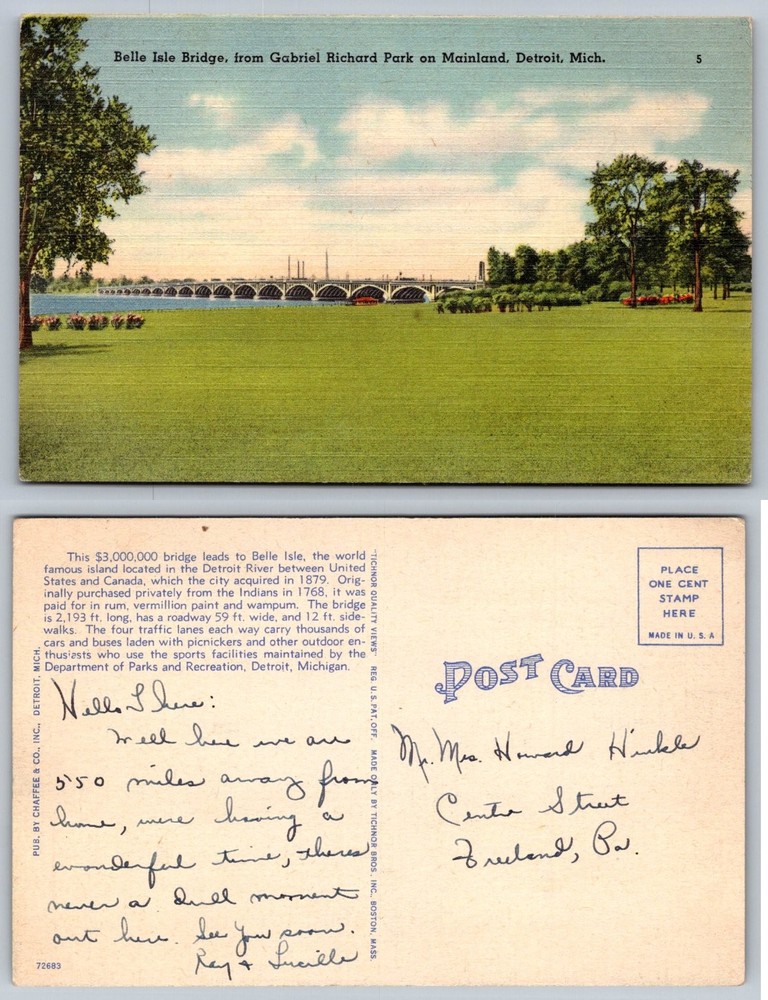 Belle Isle Bridge, from Gabriel Richard Park on Mainland, Detroit, Mich.
5
This $3,000,000 bridge leads to Belle Isle, the world
famous island located in the Detroit River between United
States and Canada, which the city acquired in 1879. Orig-
inally purchased privately from the Indians in 1768, it was
paid for in rum, vermillion paint and wampum. The bridge
is 2,193 ft. long, has a roadway 59 ft. wide, and 12 ft. side-
walks. The four traffic lanes each way carry thousands of
cars and buses laden with picnickers and other outdoor en-
thusiasts who use the sports facilities maintained by the
Department of Parks and Recreation, Detroit, Michigan.
PUB. BY CHAFFEE & CO., INC., DETROIT, MICH.
Hello There:
Well here we are
550 miles away from
home, were having a
wonderful time, theres
never a dull moment
out here. See You soon.
Ray + Lucille
72683
"TICHNOR QUALITY VIEWS" REG. U.S. PAT. OFF. MADE ONLY BY TICHNOR BROS., INC., BOSTON, MASS.
POST CARD
PLACE
ONE CENT
STAMP
HERE
MADE IN U. S. A
Mr. Mrs. Howard Hinkle
Centre Street
Freeland, Pa.